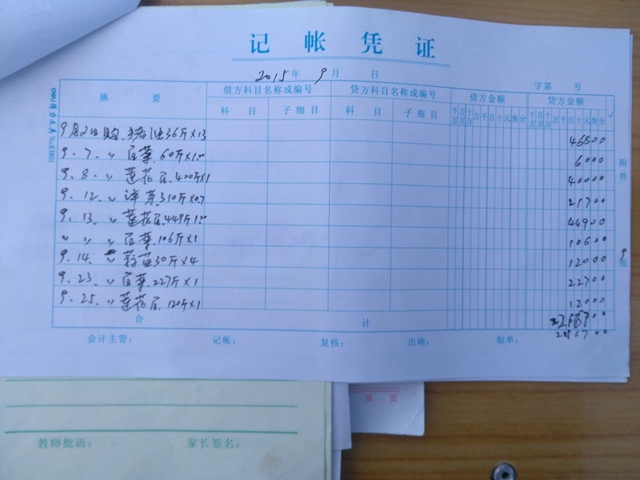 记帐凭证
2015年 9月 日 字第 号
摘要 借方科目名称或编号 贷方科目名称或编号 借方金额 贷方金额
科目 子细目 科目 子细目 千百十万千百十元角分 千百十万千百十元角分
9月2日购 油36斤×13 46500
9.7. 〃 白菜.60斤×1.00 6000
9.8. 〃 莲花白.400斤×1 40000
9.12. 〃 洋芋.310斤×0.7 21700
9.13. 〃 莲花白.449斤1.00 44900
〃 〃 〃 白菜.106斤×1 10600
9.14. 30斤×4 12000
9.23. 〃 白菜.227斤×1 22700
9.25. 〃 莲花白.120斤×1 12000
合计
附件 9 张
会计主管: 记帐: 复核: 出纳: 制单:
教师批语: 家长签名: